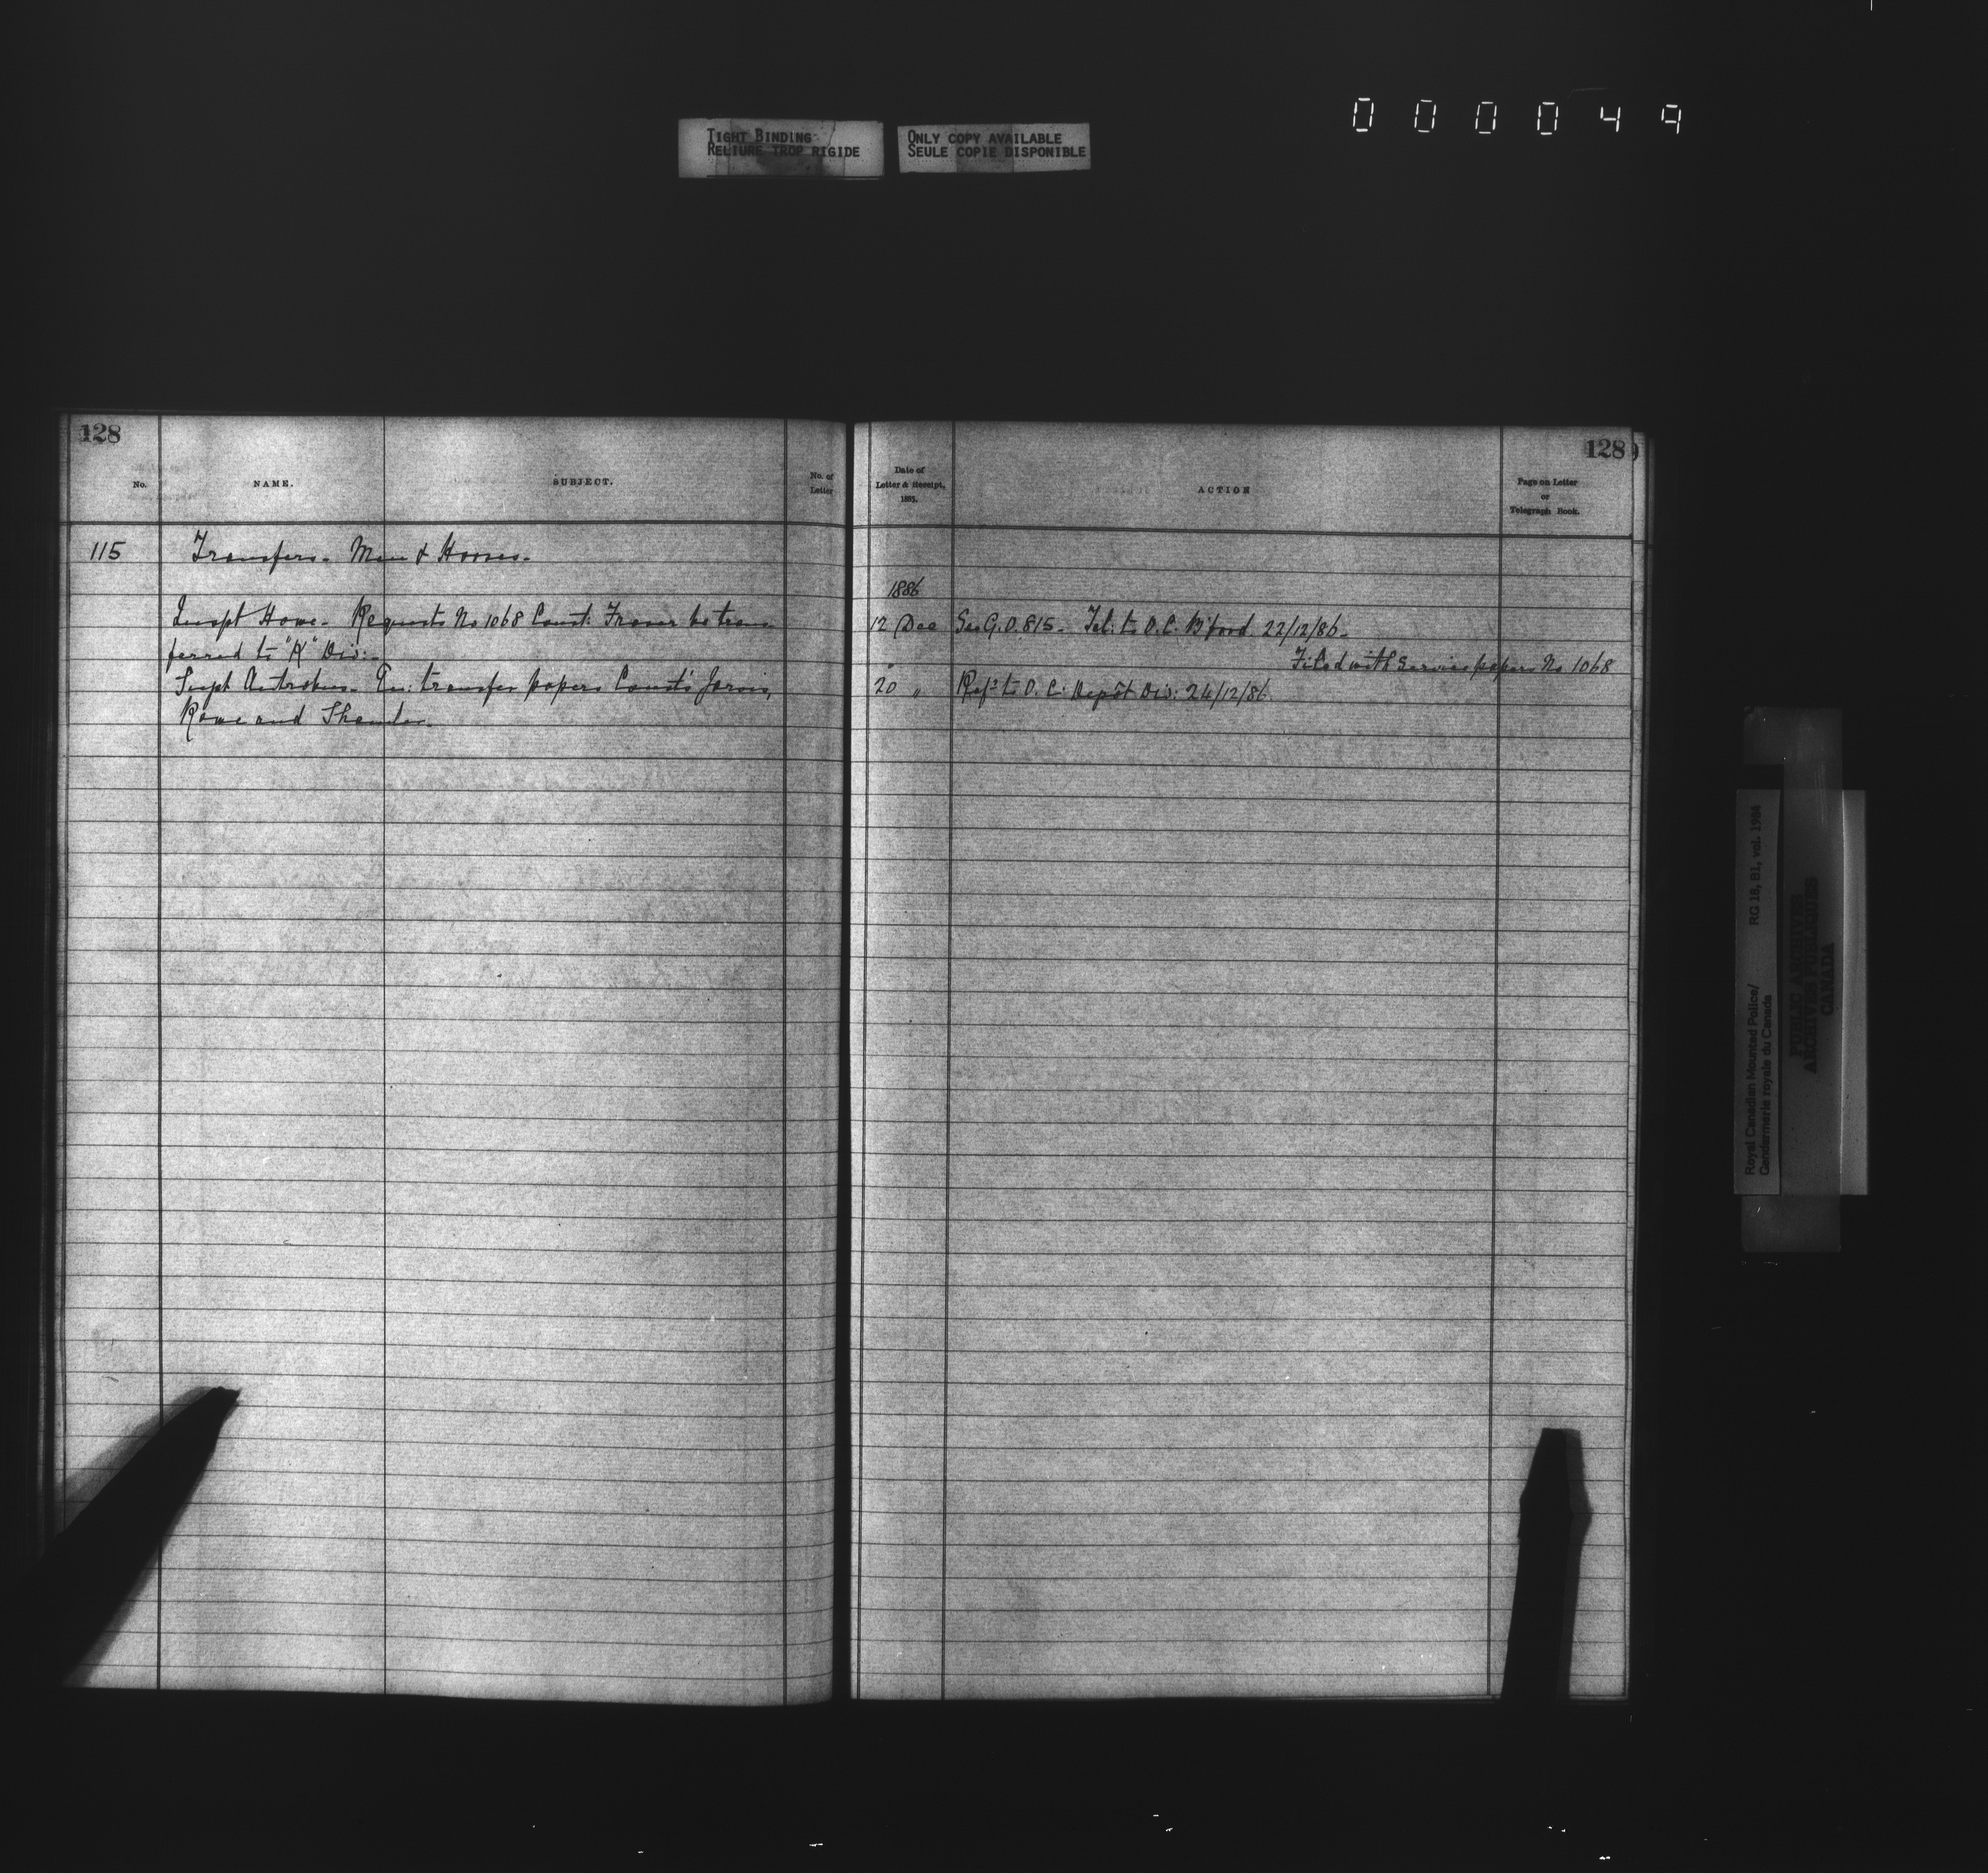 000049
TIGHT BINDING
RELIURE TROP RIGIDE
ONLY COPY AVAILABLE
SEULE COPIE DISPONIBLE
128
No.
NAME.
SUBJECT.
No. of
Letter
115 Transfers - Men & Horses -
Inspt Howe - Requests No 1068 Const: Fraser be trans
ferred to "K" Div: -
Supt Antrobus - En: transfer papers Const's Jarvis,
Rowe and
128
Date of
Letter & Receipt,
1883.
ACTION
Page on Letter
or
Telegraph Book.
1886
12 Dec See G.O. 815 - Tel: to O.C. B'ford 22/12/86 -
Filed with Service papers No 1068
20 " Ref'd to O.C. Depôt Div: 24/12/86
Royal Canadian Mounted Police/
Gendarmerie royale du Canada
RG 18, B1, vol. 1984
PUBLIC ARCHIVES
ARCHIVES PUBLIQUES
CANADA